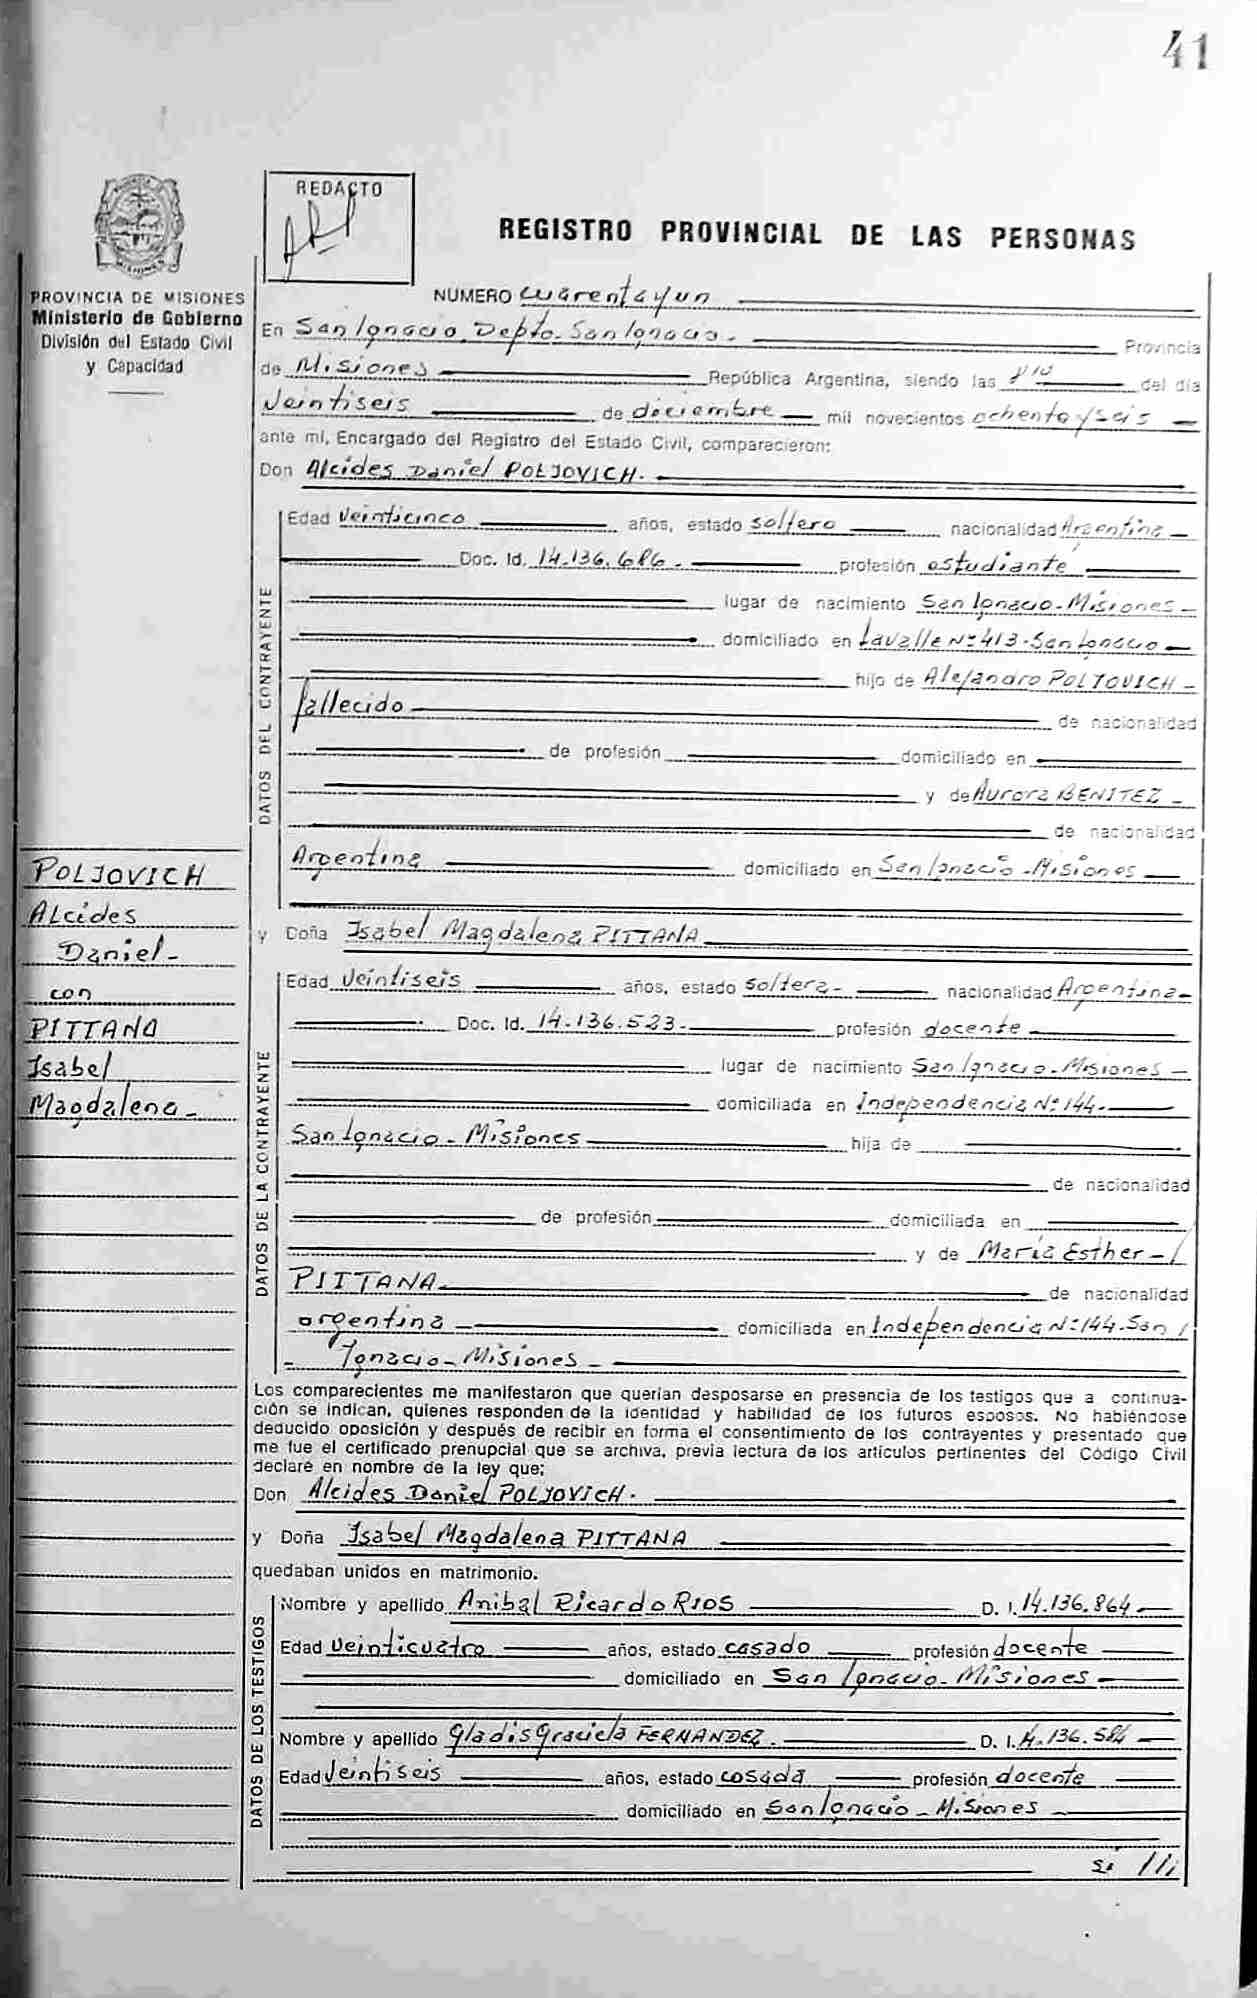 41
REDACTO
REGISTRO PROVINCIAL DE LAS PERSONAS
PROVINCIA DE MISIONES
Ministerio de Gobierno
División del Estado Civil
y Capacidad
NUMERO cuarenta y un
En San Ignacio Depto. San Ignacio. Provincia
de Misiones República Argentina, siendo las del dia
Veintiseis de diciembre mil novecientos ochenta y seis
ante mí, Encargado del Registro del Estado Civil, comparecieron:
Don Alcides Daniel POLJOVICH.
DATOS DEL CONTRAYENTE
Edad Veinticinco años, estado soltero nacionalidad Argentina
Doc. Id. 14.136.686. profesión estudiante
lugar de nacimiento San Ignacio - Misiones
domiciliado en Lavalle Nº 413 - San Ignacio
hijo de Alejandro POLJOVICH
fallecido de nacionalidad
de profesión domiciliado en
y de Aurora BENITEZ
de nacionalidad
Argentina domiciliado en San Ignacio - Misiones
POLJOVICH
Alcides
Daniel -
con
PITTANA
Isabel
Magdalena -
y Doña Isabel Magdalena PITTANA
DATOS DE LA CONTRAYENTE
Edad Veintiseis años, estado soltera - nacionalidad Argentina -
Doc. Id. 14.136.523. profesión docente
lugar de nacimiento San Ignacio - Misiones
domiciliada en Independencia Nº 144.
San Ignacio - Misiones hija de
de nacionalidad
de profesión domiciliada en
y de María Esther - /
PITTANA de nacionalidad
argentina domiciliada en Independencia Nº 144. San /
- Ignacio - Misiones -
Los comparecientes me manifestaron que querían desposarse en presencia de los testigos que a continua-
ción se indican, quienes responden de la identidad y habilidad de los futuros esposos. No habiéndose
deducido oposición y después de recibir en forma el consentimiento de los contrayentes y presentado que
me fue el certificado prenupcial que se archiva, previa lectura de los artículos pertinentes del Código Civil
declaré en nombre de la ley que:
Don Alcides Daniel POLJOVICH.
y Doña Isabel Magdalena PITTANA
quedaban unidos en matrimonio.
DATOS DE LOS TESTIGOS
Nombre y apellido Anibal Ricardo RIOS D. I. 14.136.864
Edad Veinticuatro años, estado casado profesión docente
domiciliado en San Ignacio - Misiones
Nombre y apellido Gladis Graciela FERNANDEZ. D. I. 14.136.584
Edad Veintiseis años, estado casada profesión docente
domiciliado en San Ignacio - Misiones